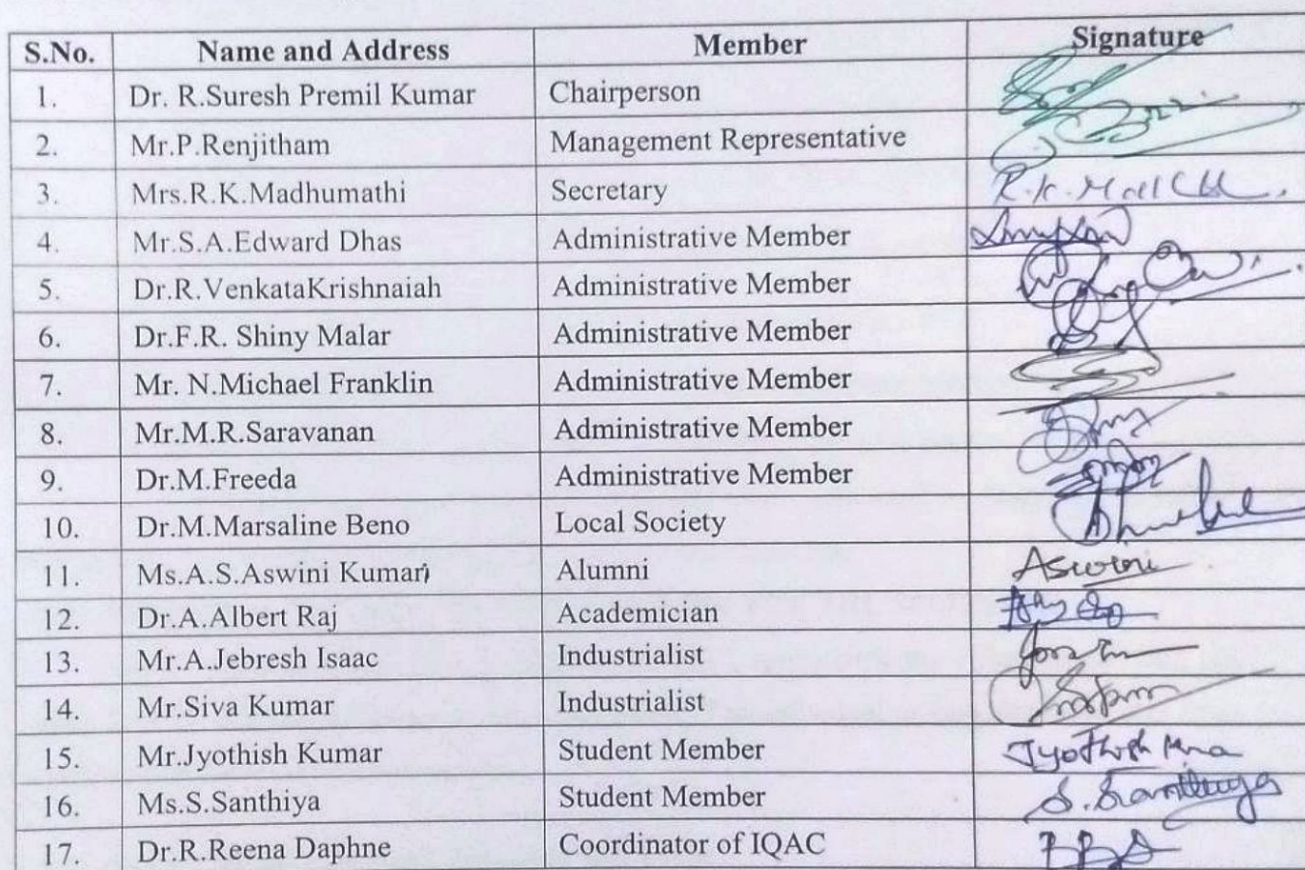 S.No. Name and Address Member Signature
1. Dr. R.Suresh Premil Kumar Chairperson
2. Mr.P.Renjitham Management Representative
3. Mrs.R.K.Madhumathi Secretary
4. Mr.S.A.Edward Dhas Administrative Member
5. Dr.R.VenkataKrishnaiah Administrative Member
6. Dr.F.R. Shiny Malar Administrative Member
7. Mr. N.Michael Franklin Administrative Member
8. Mr.M.R.Saravanan Administrative Member
9. Dr.M.Freeda Administrative Member
10. Dr.M.Marsaline Beno Local Society
11. Ms.A.S.Aswini Kumari Alumni Aswini
12. Dr.A.Albert Raj Academician
13. Mr.A.Jebresh Isaac Industrialist
14. Mr.Siva Kumar Industrialist
15. Mr.Jyothish Kumar Student Member Jyothish
16. Ms.S.Santhiya Student Member S.Santhiya
17. Dr.R.Reena Daphne Coordinator of IQAC